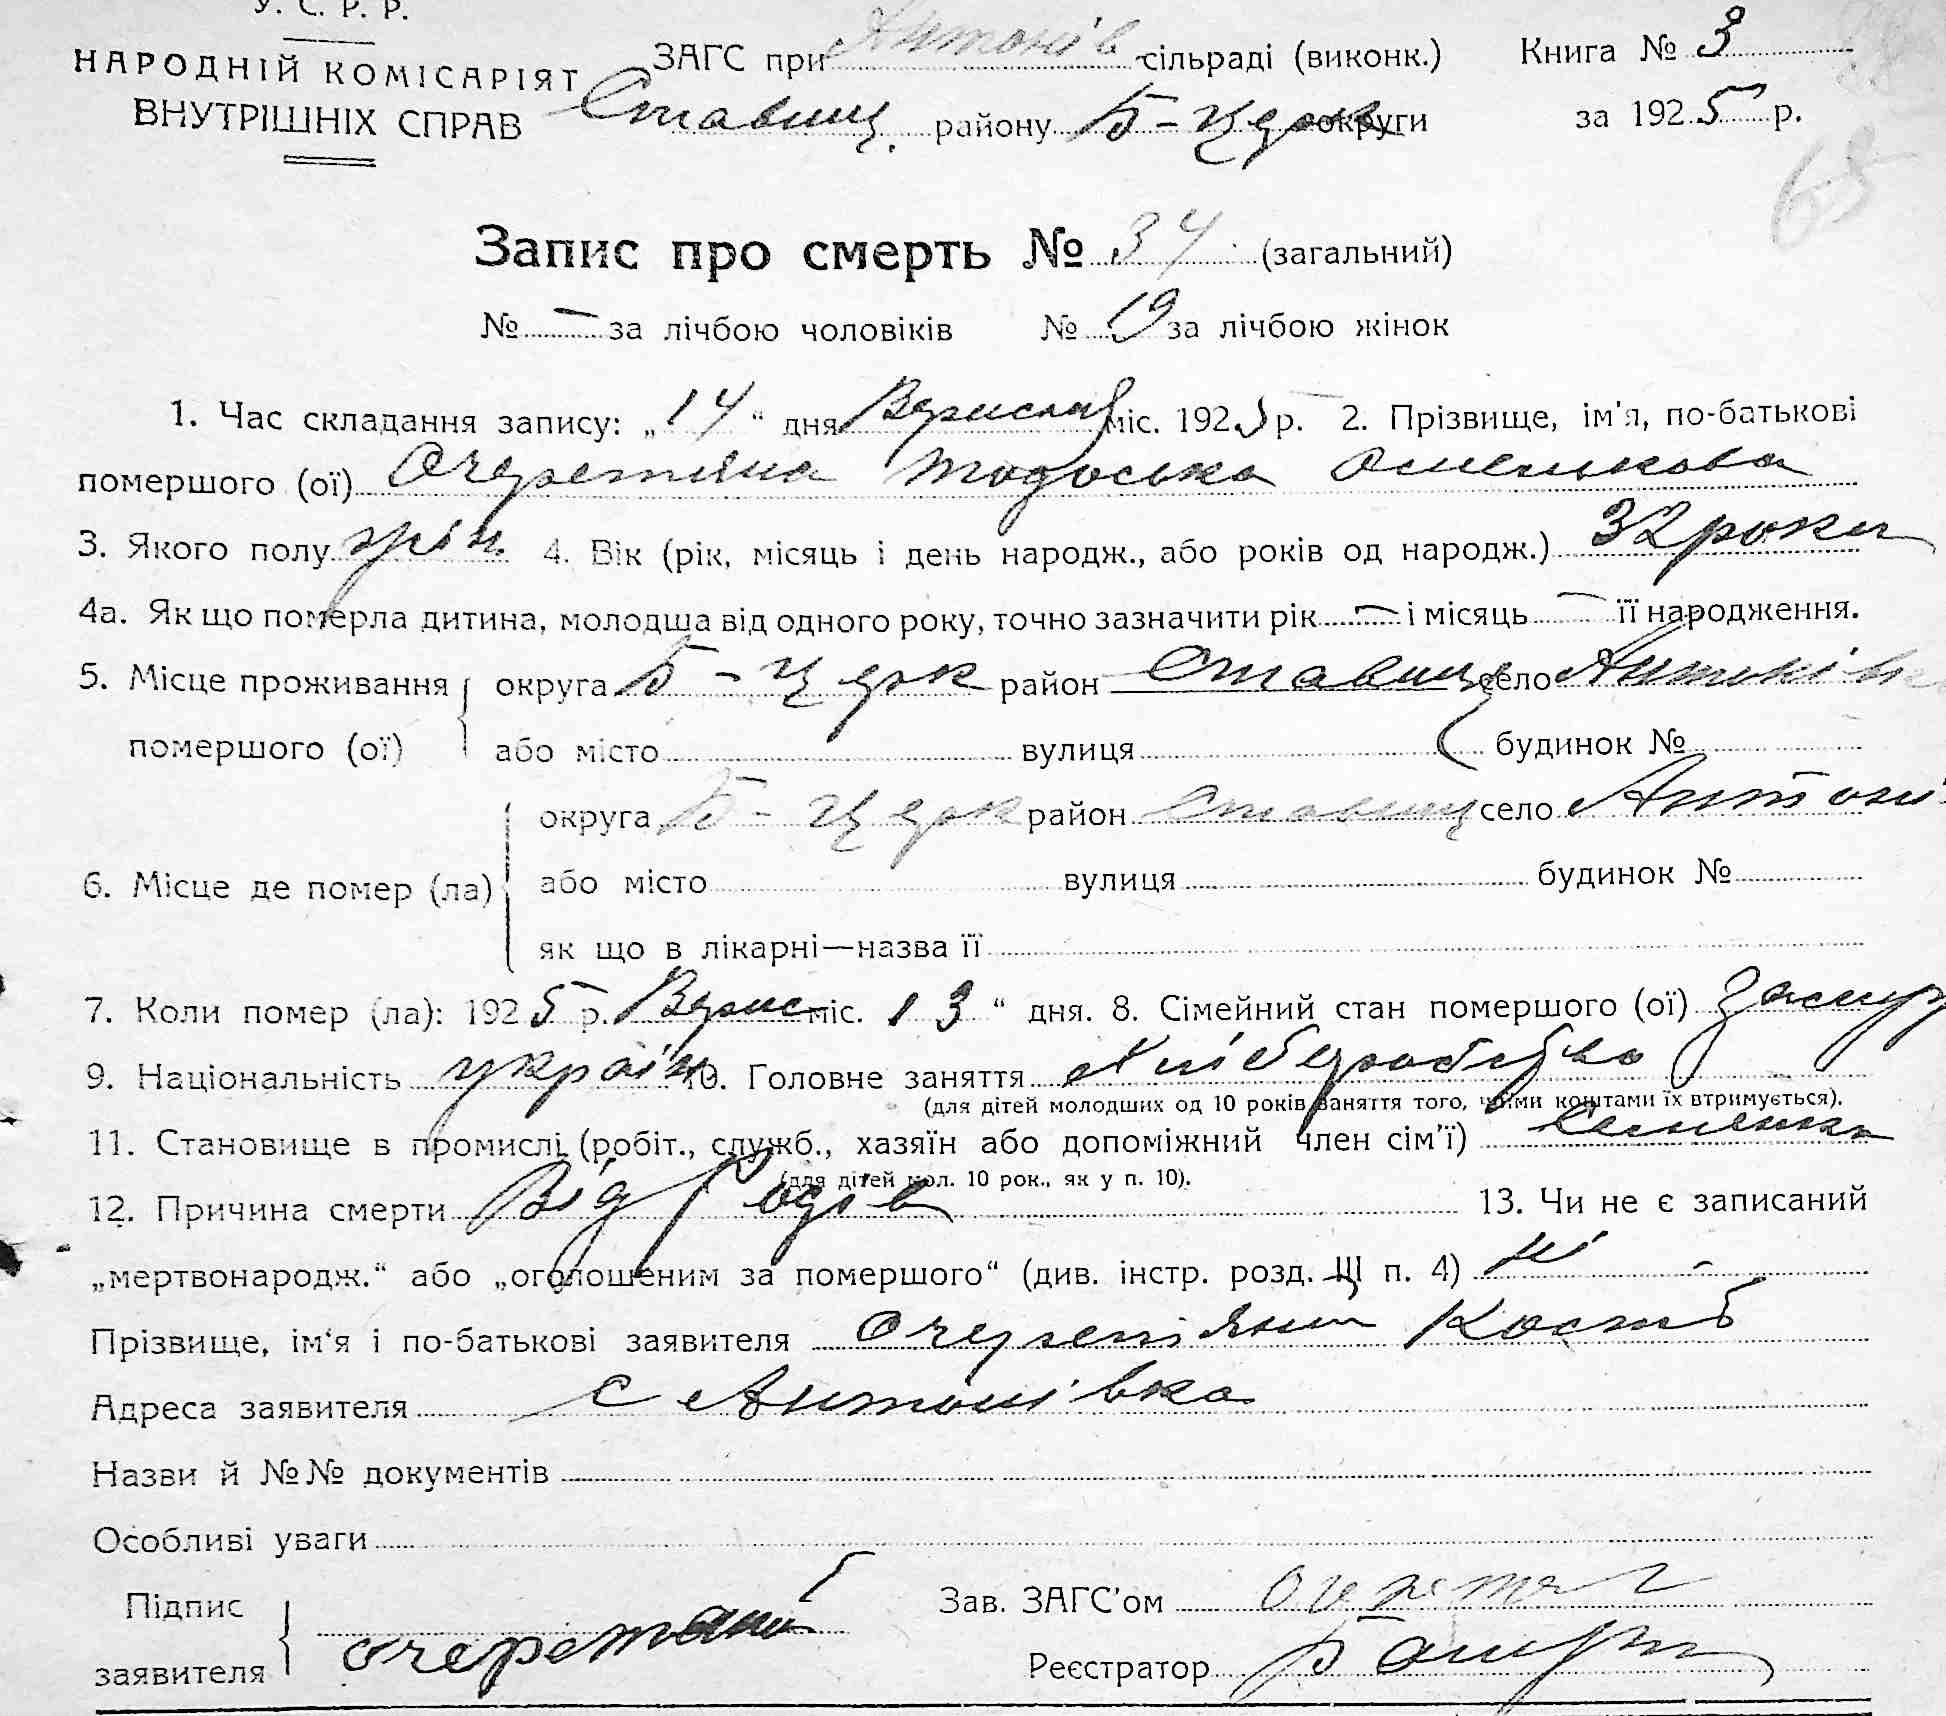 У. С. Р. Р.
НАРОДНІЙ КОМІСАРІЯТ
ВНУТРІШНІХ СПРАВ
ЗАГС при Антонів сільраді (виконк.) Книга № 3
Ставищ. району Б-Церк округи за 1925 р.
65
Запис про смерть № 34 (загальний)
№ — за лічбою чоловіків № 19 за лічбою жінок
1. Час складання запису: „14“ дня Вересня міс. 1925 р. 2. Прізвище, ім'я, по-батькові
помершого (ої) Очеретяна Тодоська Омелькова
3. Якого полу жін. 4. Вік (рік, місяць і день народж., або років од народж.) 32 роки
4а. Як що померла дитина, молодша від одного року, точно зазначити рік — і місяць — її народження.
5. Місце проживання помершого (ої) округа Б-Церк район Ставищ село Антонівк
або місто вулиця будинок №
6. Місце де помер (ла) округа Б-Церк район Ставищ село Антоні
або місто вулиця будинок №
як що в лікарні—назва її
7. Коли помер (ла): 1925 р. Верес міс. 13“ дня. 8. Сімейний стан помершого (ої) Замуж
9. Національність україн 10. Головне заняття Хліборобство
(для дітей молодших од 10 років заняття того, чиїми коштами їх втримується).
11. Становище в промислі (робіт., служб., хазяїн або допоміжний член сім'ї)
(для дітей мол. 10 рок., як у п. 10).
12. Причина смерти Від Родів 13. Чи не є записаний
„мертвонародж.“ або „оголошеним за помершого“ (див. інстр. розд. III п. 4) ні
Прізвище, ім'я і по-батькові заявителя Очеретяний Кость
Адреса заявителя с Антонівка
Назви й №№ документів
Особливі уваги
Підпис заявителя очеретяний
Зав. ЗАГС'ом
Реєстратор